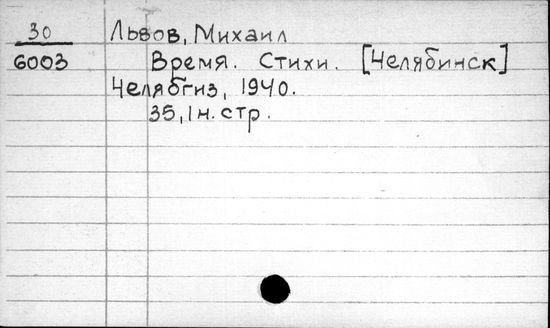 30 Львов, Михаил
6003 Время. Стихи. [Челябинск]
Челябгиз, 1940.
35, 1 н. стр.